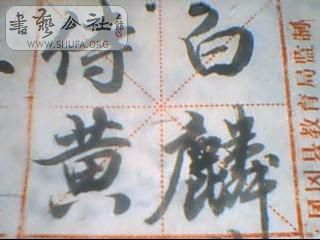 書藝公社
WWW.SHUFA.ORG
白麟
待黄
县教育局监制